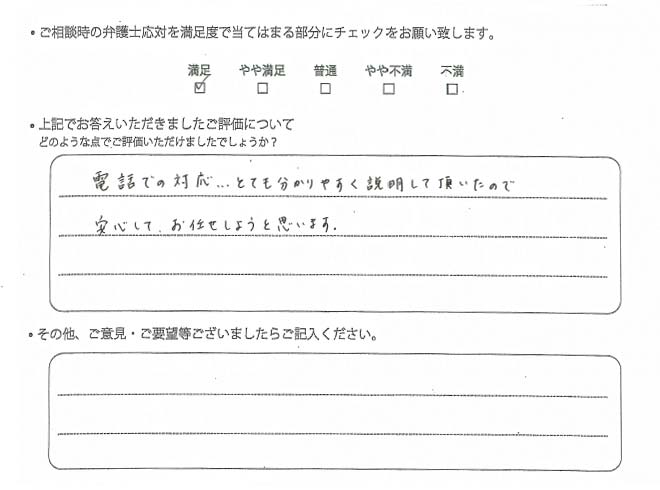 ・ご相談時の弁護士応対を満足度で当てはまる部分にチェックをお願い致します。
満足 やや満足 普通 やや不満 不満
☑ □ □ □ □
・上記でお答えいただきましたご評価について
どのような点でご評価いただけましたでしょうか？
電話での対応…とても分かりやすく説明して頂いたので
安心して、お任せしようと思います.
・その他、ご意見・ご要望等ございましたらご記入ください。